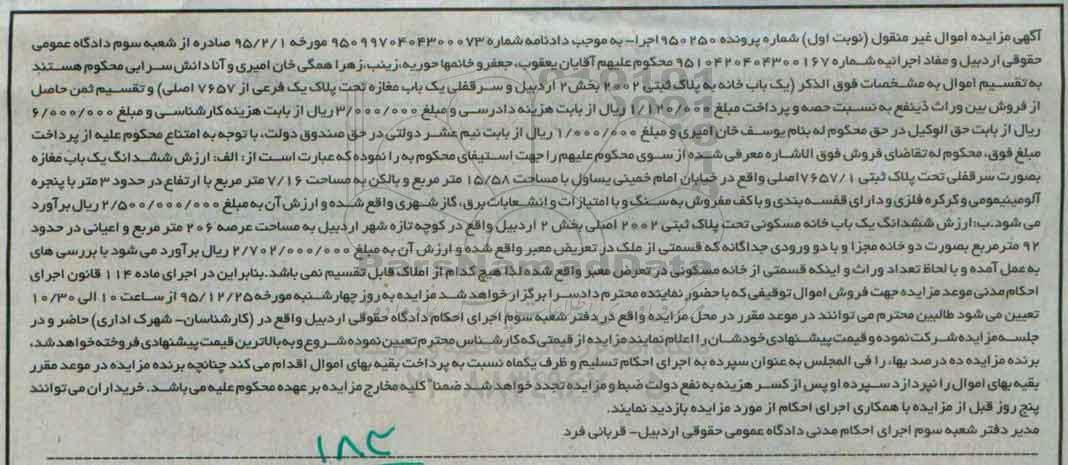 آگهی مزایده اموال غیر منقول (نوبت اول) شماره پرونده ۹۵۰۲۵۰اجرا- به موجب دادنامه شماره ۹۵۰۹۹۷۰۴۰۴۳۰۰۰۷۳ مورخه ۹۵/۲/۱ صادره از شعبه سوم دادگاه عمومی
حقوقی اردبیل و مفاد اجرائیه شماره ۹۵۱۰۴۲۰۴۰۴۳۰۰۱۶۷ محکوم علیهم آقایان یعقوب، جعفر و خانمها حوریه، زینب، زهرا همگی خان امیری و آنا دانش سرابی محکوم هستند
به تقسیم اموال به مشخصات فوق الذکر (یک باب خانه به پلاک ثبتی ۲۰۰۲ بخش ۲ اردبیل و سرقفلی یک باب مغازه تحت پلاک یک فرعی از ۷۶۵۷ اصلی) و تقسیم ثمن حاصل
از فروش بین وراث ذینفع به نسبت حصه و پرداخت مبلغ ۱/۱۲۰/۰۰۰ ریال از بابت هزینه دادرسی و مبلغ ۳/۰۰۰/۰۰۰ ریال از بابت هزینه کارشناسی و مبلغ ۶/۰۰۰/۰۰۰
ریال از بابت حق الوکیل در حق محکوم له بنام یوسف خان امیری و مبلغ ۱/۰۰۰/۰۰۰ ریال از بابت نیم عشر دولتی در حق صندوق دولت، با توجه به امتناع محکوم علیه از پرداخت
مبلغ فوق، محکوم له تقاضای فروش فوق الاشاره معرفی شده از سوی محکوم علیهم را جهت استیفای محکوم به را نموده که عبارت است از: الف: ارزش ششدانگ یک باب مغازه
بصورت سرقفلی تحت پلاک ثبتی ۷۶۵۷/۱اصلی واقع در خیابان امام خمینی یساول با مساحت ۱۵/۵۸ متر مربع و بالکن به مساحت ۷/۱۶ متر مربع با ارتفاع در حدود ۳ متر با پنجره
آلومینیومی و کرکره فلزی و دارای قفسه بندی و با کف مفروش به سنگ و با امتیازات و انشعابات برق، گاز شهری واقع شده و ارزش آن به مبلغ ۲/۵۰۰/۰۰۰/۰۰۰ ریال برآورد
می شود.ب:ارزش ششدانگ یک باب خانه مسکونی تحت پلاک ثبتی ۲۰۰۲ اصلی بخش ۲ اردبیل واقع در کوچه تازه شهر اردبیل به مساحت عرصه ۲۰۶ متر مربع و اعیانی در حدود
۹۲ متر مربع بصورت دو خانه مجزا و با دو ورودی جداگانه که قسمتی از ملک در تعریض معبر واقع شده و ارزش آن به مبلغ ۲/۷۰۲/۰۰۰/۰۰۰ ریال برآورد می شود با بررسی های
به عمل آمده و با لحاظ تعداد وراث و اینکه قسمتی از خانه مسکونی در تعرض معبر واقع شده لذا هیچ کدام از املاک قابل تقسیم نمی باشد.بنابراین در اجرای ماده ۱۱۴ قانون اجرای
احکام مدنی موعد مزایده جهت فروش اموال توقیفی که با حضور نماینده محترم دادسرا برگزار خواهد شد مزایده به روز چهارشنبه مورخه ۹۵/۱۲/۲۵ از ساعت ۱۰ الی ۱۰/۳۰
تعیین می شود طالبین محترم می توانند در موعد مقرر در محل مزایده واقع در دفتر شعبه سوم اجرای احکام دادگاه حقوقی اردبیل واقع در (کارشناسان- شهرک اداری) حاضر و در
جلسه مزایده شرکت نموده و قیمت پیشنهادی خودشان را اعلام نمایند مزایده از قیمتی که کارشناس محترم تعیین نموده شروع و به بالاترین قیمت پیشنهادی فروخته خواهد شد،
برنده مزایده ده درصد بها، را فی المجلس به عنوان سپرده به اجرای احکام تسلیم و ظرف یکماه نسبت به پرداخت بقیه بهای اموال اقدام می کند چنانچه برنده مزایده در موعد مقرر
بقیه بهای اموال را نپردازد سپرده او پس از کسر هزینه به نفع دولت ضبط و مزایده تجدد خواهد شد ضمنا" کلیه مخارج مزایده بر عهده محکوم علیه می باشد. خریداران می توانند
پنج روز قبل از مزایده با همکاری اجرای احکام از مورد مزایده بازدید نمایند.
مدیر دفتر شعبه سوم اجرای احکام مدنی دادگاه عمومی حقوقی اردبیل- قربانی فرد
۱۸۳